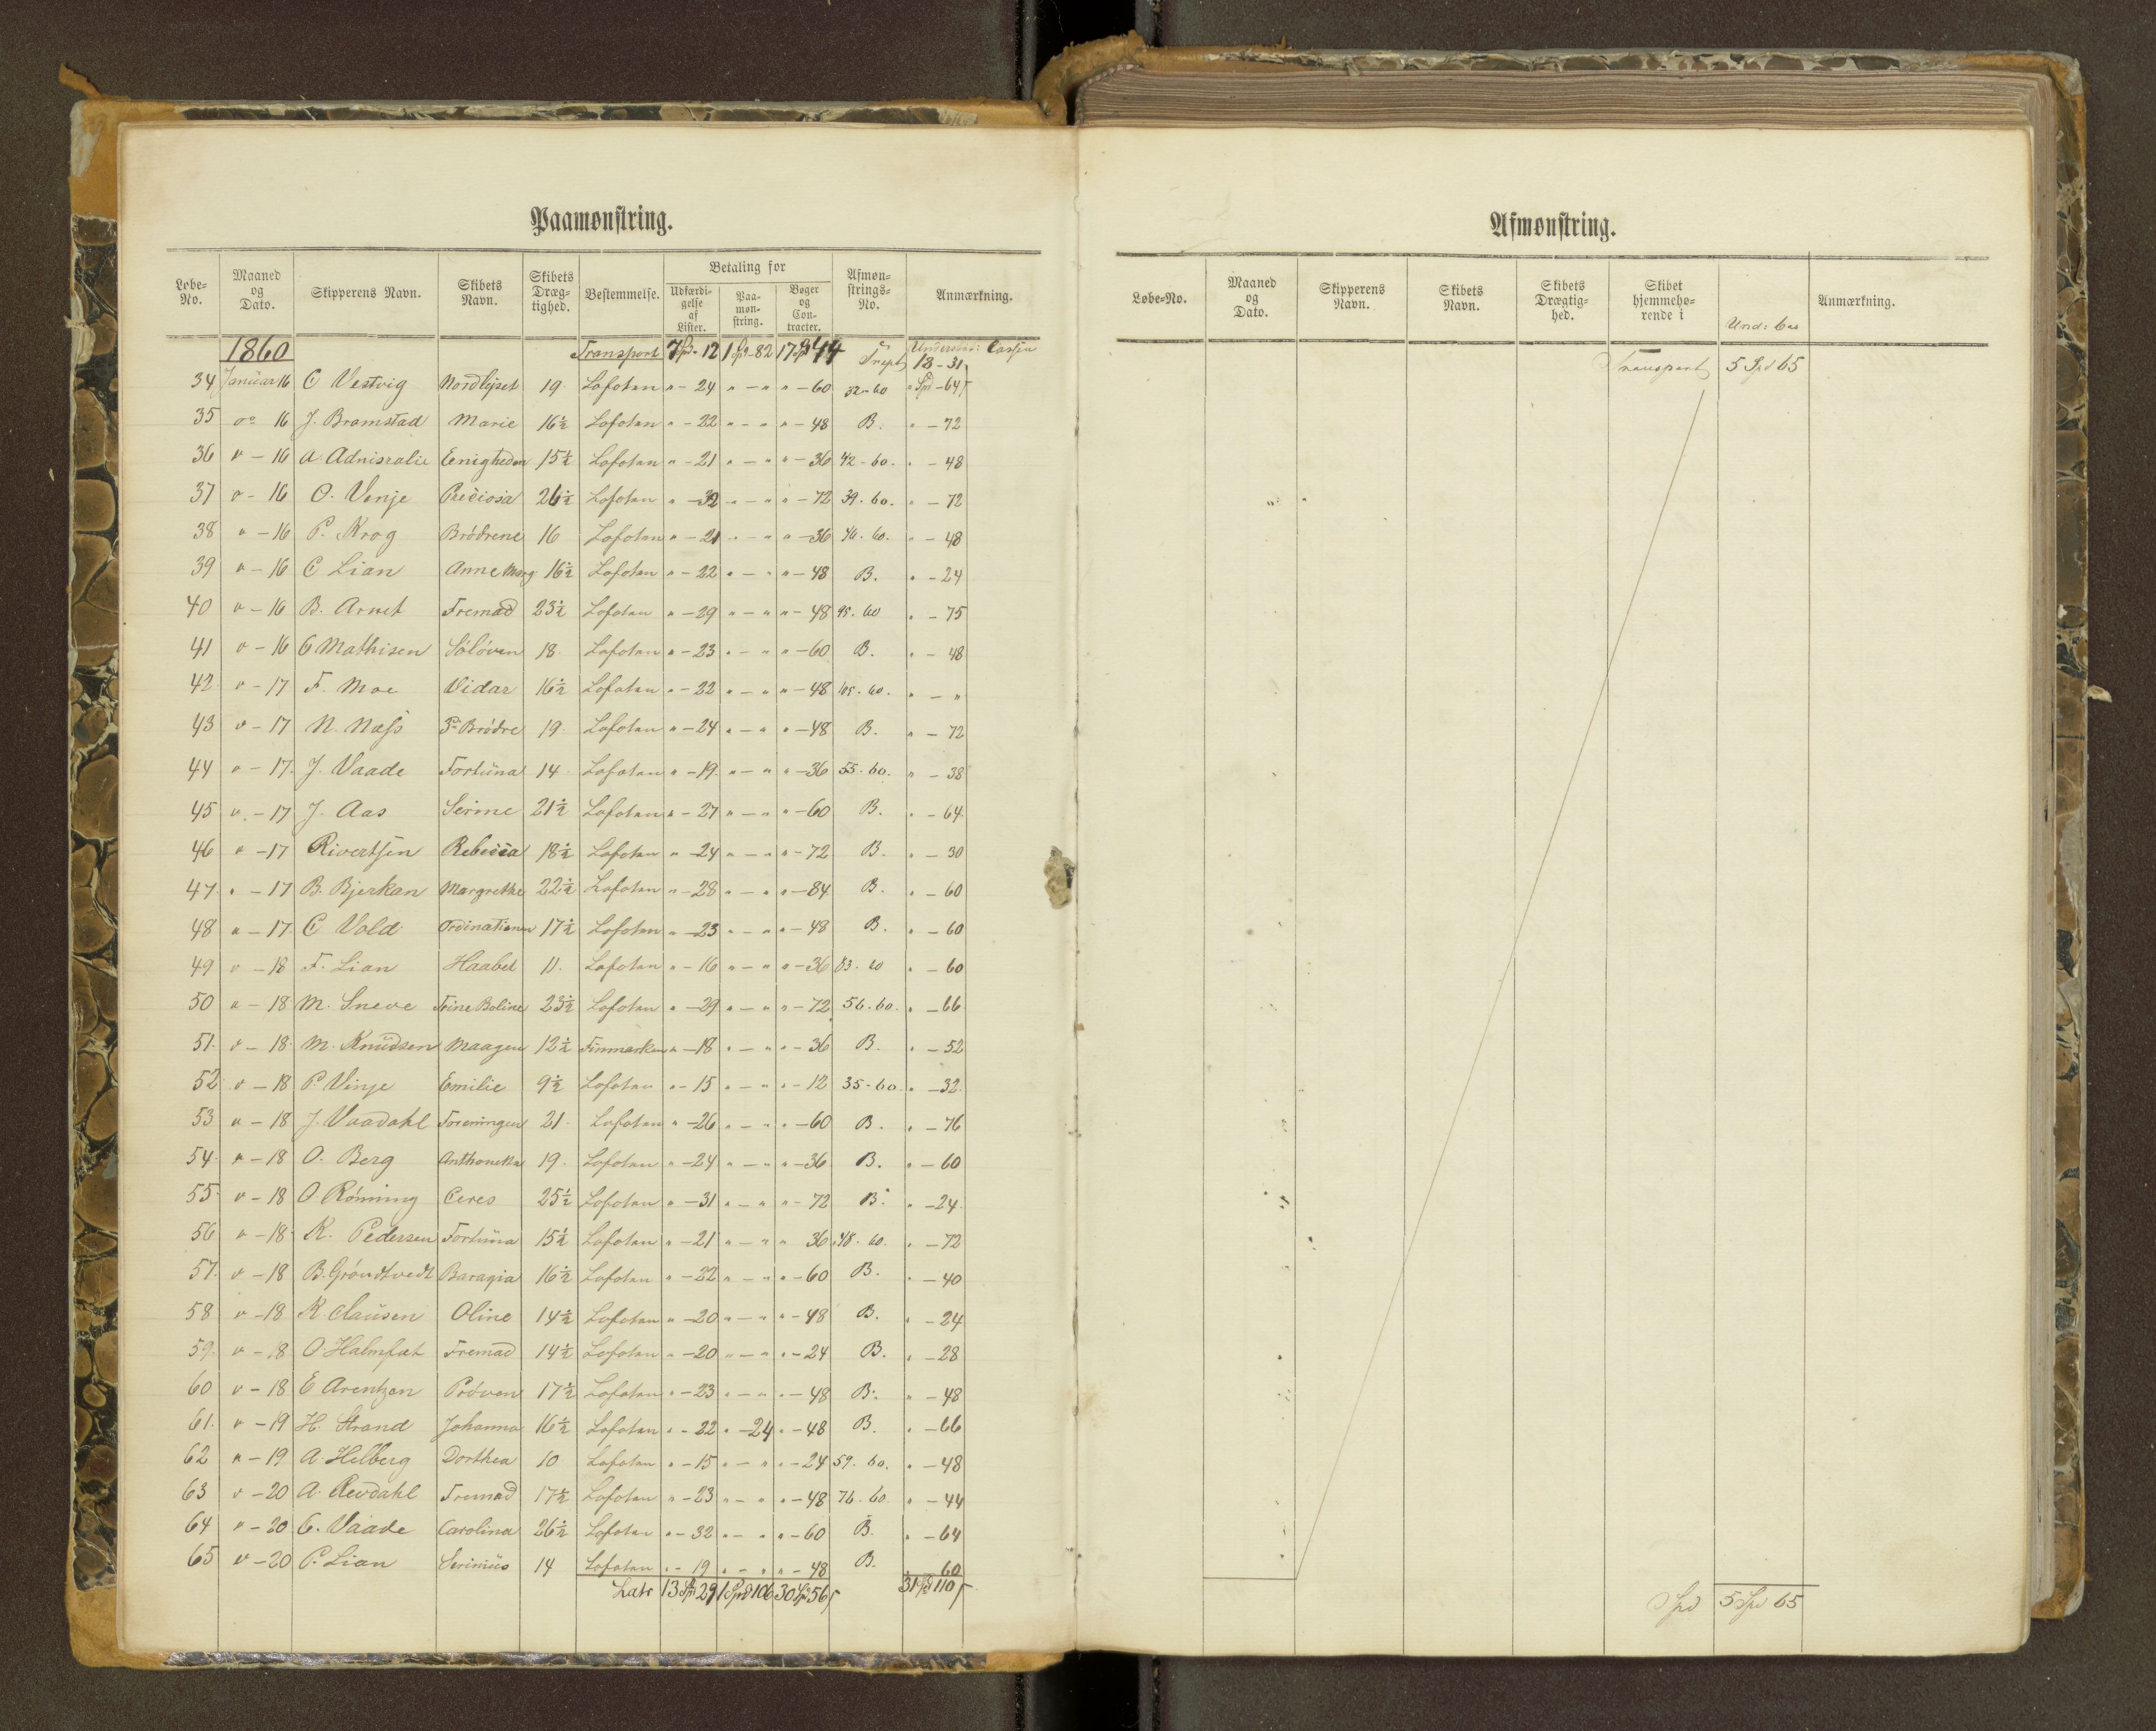 Paamønstring.
Løbe-No. Maaned og Dato. Skipperens Navn. Skibets Navn. Skibets Dræg-tighed. Bestemmelse. Betaling for Udfærdi-gelse af Lister. Paa-møn-string. Bøger og Con-tracter. Afmøn-strings-No. Anmærkning.
1860 Transport 7 Spd - 12 1 Spd - 82 17 Spd 44 13 - 31
34 Januar 16 C Vestvig Nordlyset 19 Lofoten " - 24 " - " " - 60 32 - 60 " Spd - 64
35 " 16 J. Bromstad Marie 16½ Lofoten " - 22 " - " " - 48 B. " - 72
36 " - 16 A. Enigheden 15½ Lofoten " - 21 " - " " - 36 42 - 60. " - 48
37 " - 16 O. Venje Preciosa 26½ Lofoten " - 32 " - " " - 72 39. 60. " - 72
38 " - 16 P. Krog Brödrene 16 Lofoten " - 21 " - " " - 36 46. 60. " - 48
39 " - 16 C Lian Anne Marg 16½ Lofoten " - 22 " - " " - 48 B. " - 24
40 " - 16 B. Arnet Fremad 23½ Lofoten " - 29 " - " " - 48 95. 60 " - 75
41 " - 16 C Mathisen Söløven 18 Lofoten " - 23 " - " " - 60 B. " - 48
42 " - 17 F. Moe Vidar 16½ Lofoten " - 22 " - " " - 48 105. 60. " - "
43 " - 17 N. Næss 3de Brödre 19 Lofoten " - 24 " - " " - 48 B. " - 72
44 " - 17. J. Vaade Fortuna 14 Lofoten " - 19 " - " " - 36 55. 60. " - 38
45 " - 17 J. Aas Serine 21½ Lofoten " - 27 " - " " - 60 B. " - 64
46 " - 17 Rivertsen Rebecca 18½ Lofoten " - 24 " - " " - 72 B. " - 30
47 " - 17 B. Bjerkan Margrethe 22½ Lofoten " - 28 " - " " - 84 B. " - 60
48 " - 17. C Vold Ordinationen 17½ Lofoten " - 23 " - " " - 48 B. " - 60
49 " - 18 F. Lian Haabet 11. Lofoten " - 16 " - " " - 36 83. 60 " - 60
50 " - 18 M. Sneve Trine Boline 23½ Lofoten " - 29 " - " " - 72 56. 60. " - 66
51. " - 18. M. Knudsen Maagen 12½ Finmarken " - 18 " - " " - 36 B. " - 52
52 " - 18 P. Vinje Emilie 9½ Lofoten " - 15 " - " " - 12 35 - 60. " - 32.
53 " - 18 J. Vaadahl Foreningen 21. Lofoten " - 26 " - " " - 60 B. " - 76
54. " - 18 O. Berg Anthonetta 19. Lofoten " - 24 " - " " - 36 B. " - 60
55. " - 18 O. Rönning Ceres 25½ Lofoten " - 31 " - " " - 72 B. " - 24
56 " - 18 K. Pedersen Fortuna 15½ Lofoten " - 21 " - " " 36 48. 60. " - 72
57. " - 18 B. Gröndtvedt 16½ Lofoten " - 22 " - " " - 60 B. " - 40
58 " - 18 K. Clausen Oline 14½ Lofoten " - 20 " - " " - 48 B. " - 24
59. " - 18 O. Fremad 14½ Lofoten " - 20 " - " " - 24 B. " - 28
60 " - 18 E Arentzen Pröven 17½ Lofoten " - 23 " - " " - 48 B. " - 48
61. " - 19 H. Strand Johanna 16½ Lofoten " - 22 " - 24 " - 48 B. " - 66
62 " - 19 A. Helberg Dorthea 10 Lofoten " - 15 " - " " - 24 59. 60. " - 48
63 " - 20 A. Revdahl Fremad 17½ Lofoten " - 23 " - " " - 48 76. 60. " - 44
64 " - 20 C. Vaade Carolina 26½ Lofoten " - 32 " - " " - 60 B. " - 64
65 " - 20 P. Lian Serinius 14 Lofoten " - 19 " - " " - 48 B. " 60
Latr 13 Spd 29 1 Spd 106 30 Spd 56 31 Spd 110
Afmønstring.
Løbe-No. Maaned og Dato. Skipperens Navn. Skibets Navn. Skibets Drægtig-hed. Skibet hjemmehø-rende i Und: Cas Anmærkning.
Transport 5 Spd 65
Spd 5 Spd 65